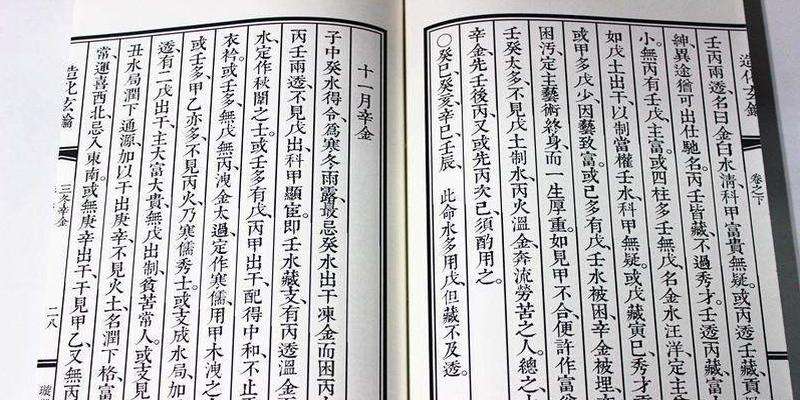 造化玄鑰
卷之下
壬丙兩透、名曰金白水清、科甲富貴無疑。或丙透壬藏、貢
紳、異途猶可出仕馳名。丙壬皆藏、不過秀才。壬透丙藏、富
小。無丙有壬、戊、主富。或四柱多壬、無戊、名金水汪洋、定主
如戊土出干、以制當權壬水、科甲無疑。或戊藏寅巳、秀才
或甲多戊少、因藝致富。或己多有戊、壬水被困、辛金被埋、
困污、定主藝術終身、而一生厚重。如見甲不合、便許作富
壬癸太多、不見戊土制水、丙火溫金、奔流勞苦之人。總之、
辛金先壬後丙、又或先丙次己、須酌用之。
○癸巳、癸亥、辛巳、壬辰、此命水多用戊、但藏不及透。
十一月辛金
子中癸水得令、為寒冬雨露、最忌癸水出干凍金而困丙
丙壬兩透、不見戊出、科甲顯宦。即壬水藏支、有丙透溫金
水、定作秋闈之士。或壬多有戊、丙甲出干、配得中和、不止
衣衿。或壬多、無戊無丙、洩金太過、定作寒儒、用甲木洩之
或壬多、甲乙亦多、不見丙火、乃寒儒秀士。或支成水局、加
透、有二戊出干、主大富大貴、無戊出制、貧苦常人。或支見
丑水局、潤下通源、加以干出庚辛、不見火土、名潤下格、富
常、運喜西北、忌入東南。或無庚辛出干、干見甲乙、又無丙
造化玄鑰
三冬辛金
二八